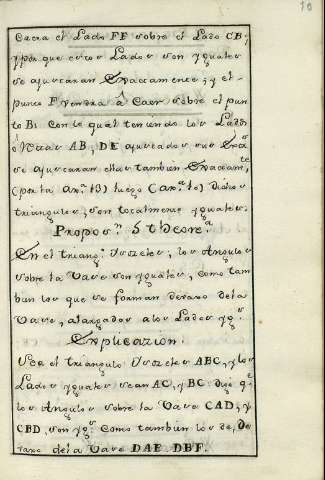 10
Caera el Lado FF sobre el Lado CB,
y por que estos Lados son yguales
se ajustaran Exactamente; y el
punto F vendra â Caer sobre el pun
to B: Con lo qual teniendo los Lados
ô Rectas AB, DE ajustados sus Exa
se ajustaran ellas tambien Exactamte
(por la ax.ª 13) luego (ax.ª 10) dichos
triangulos, son totalmente yguales.
Propos.n 5 theore.ª
En el triang.º Isozeles, los Angulos
sobre la Vase son yguales, como tam
bien los que se forman devaxo dela
Vase, alargados alos Lados yg.s
Explicazion.
Sea el triangulo Isozeles ABC, y los
Lados yguales sean AC, y BC digo q.e
los Angulos sobre la Vase CAD, y
CBD, son yg.s como tambien los de, De
vaxo dela Vase DAE DBF.